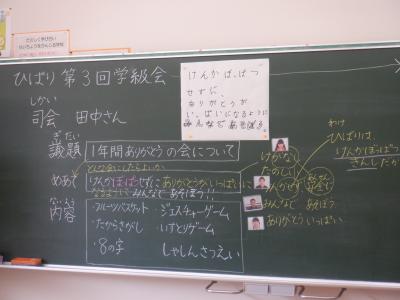 ひばり 第3回学級会
しかい
司会 田中さん
ぎだい
議題 1年間ありがとうの会について
どんな会にしたらよいか
めあて けんかばっぱつせずにありがとうがいっぱいに
なるようにみんなであそぼう!!
ないよう
内容
・フルーツバスケット ・ジェスチャーゲーム
・たからさがし ・いすとりゲーム
・8の字 しゃしんさつえい
けんかばくはつ
せずに、
ありがとうが
い。ぱいになるように
みんなであそぼう
けがなく
たのしく
けんかせず
みんなで あそぼう
ありがとういっぱい
わけ
ひばりは、